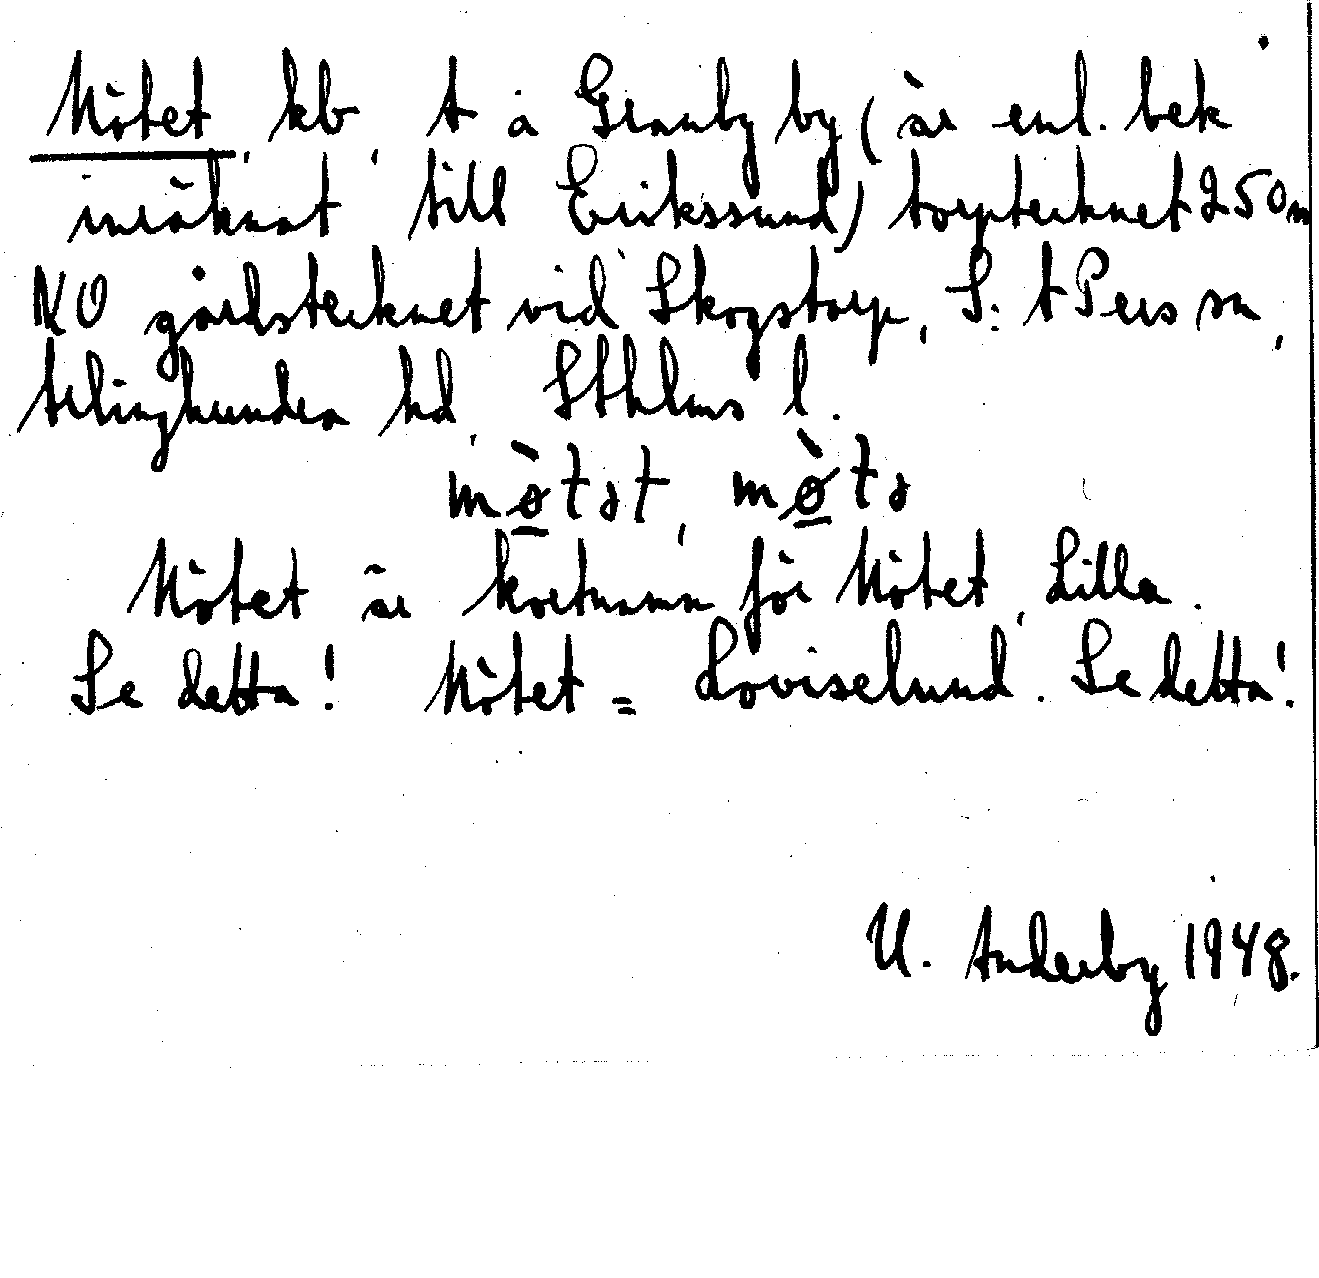 Mötet, kb, t å Granby by (är enl. bek
inräknat till Erikssund) torptecknet 250 m
NO gårdstecknet vid Skogstorp, S:t Pers sn,
Ærlinghundra hd, Sthlms l.
mø̀tət, mø̀tə
Mötet är kortnamn för Mötet, Lilla.
Se detta! Mötet = Loviselund. Se detta!
U. Anderby 1948.